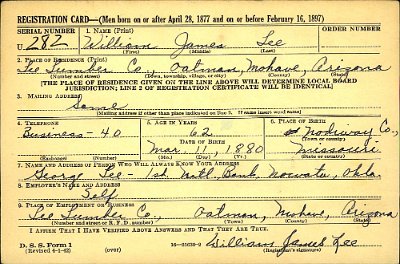 REGISTRATION CARD—(Men born on or after April 28, 1877 and on or before February 16, 1897)
SERIAL NUMBER 1. NAME (Print) ORDER NUMBER
U 282 William James Lee
(First) (Middle) (Last)
2. PLACE OF RESIDENCE (Print)
Lee Lumber Co., Oatman, Mohave, Arizona
(Number and street) (Town, township, village, or city) (County) (State)
[THE PLACE OF RESIDENCE GIVEN ON THE LINE ABOVE WILL DETERMINE LOCAL BOARD
JURISDICTION; LINE 2 OF REGISTRATION CERTIFICATE WILL BE IDENTICAL]
3. MAILING ADDRESS
Same
[Mailing address if other than place indicated on line 2. If same insert word same]
4. TELEPHONE 5. AGE IN YEARS 6. PLACE OF BIRTH
Business - 40 62 Nodiway Co.,
DATE OF BIRTH (Town or county)
Mar. 11, 1880 Missouri
(Exchange) (Number) (Mo.) (Day) (Yr.) (State or country)
7. NAME AND ADDRESS OF PERSON WHO WILL ALWAYS KNOW YOUR ADDRESS
George Lee - 1st Natl. Bank, Nowata, Okla.
8. EMPLOYER'S NAME AND ADDRESS
Self
9. PLACE OF EMPLOYMENT OR BUSINESS
Lee Lumber Co., Oatman, Mohave, Arizona
(Number and street or R. F. D. number) (Town) (County) (State)
I AFFIRM THAT I HAVE VERIFIED ABOVE ANSWERS AND THAT THEY ARE TRUE.
D. S. S. Form 1
(Revised 4-1-42) (over) William James Lee
(Registrant's signature)